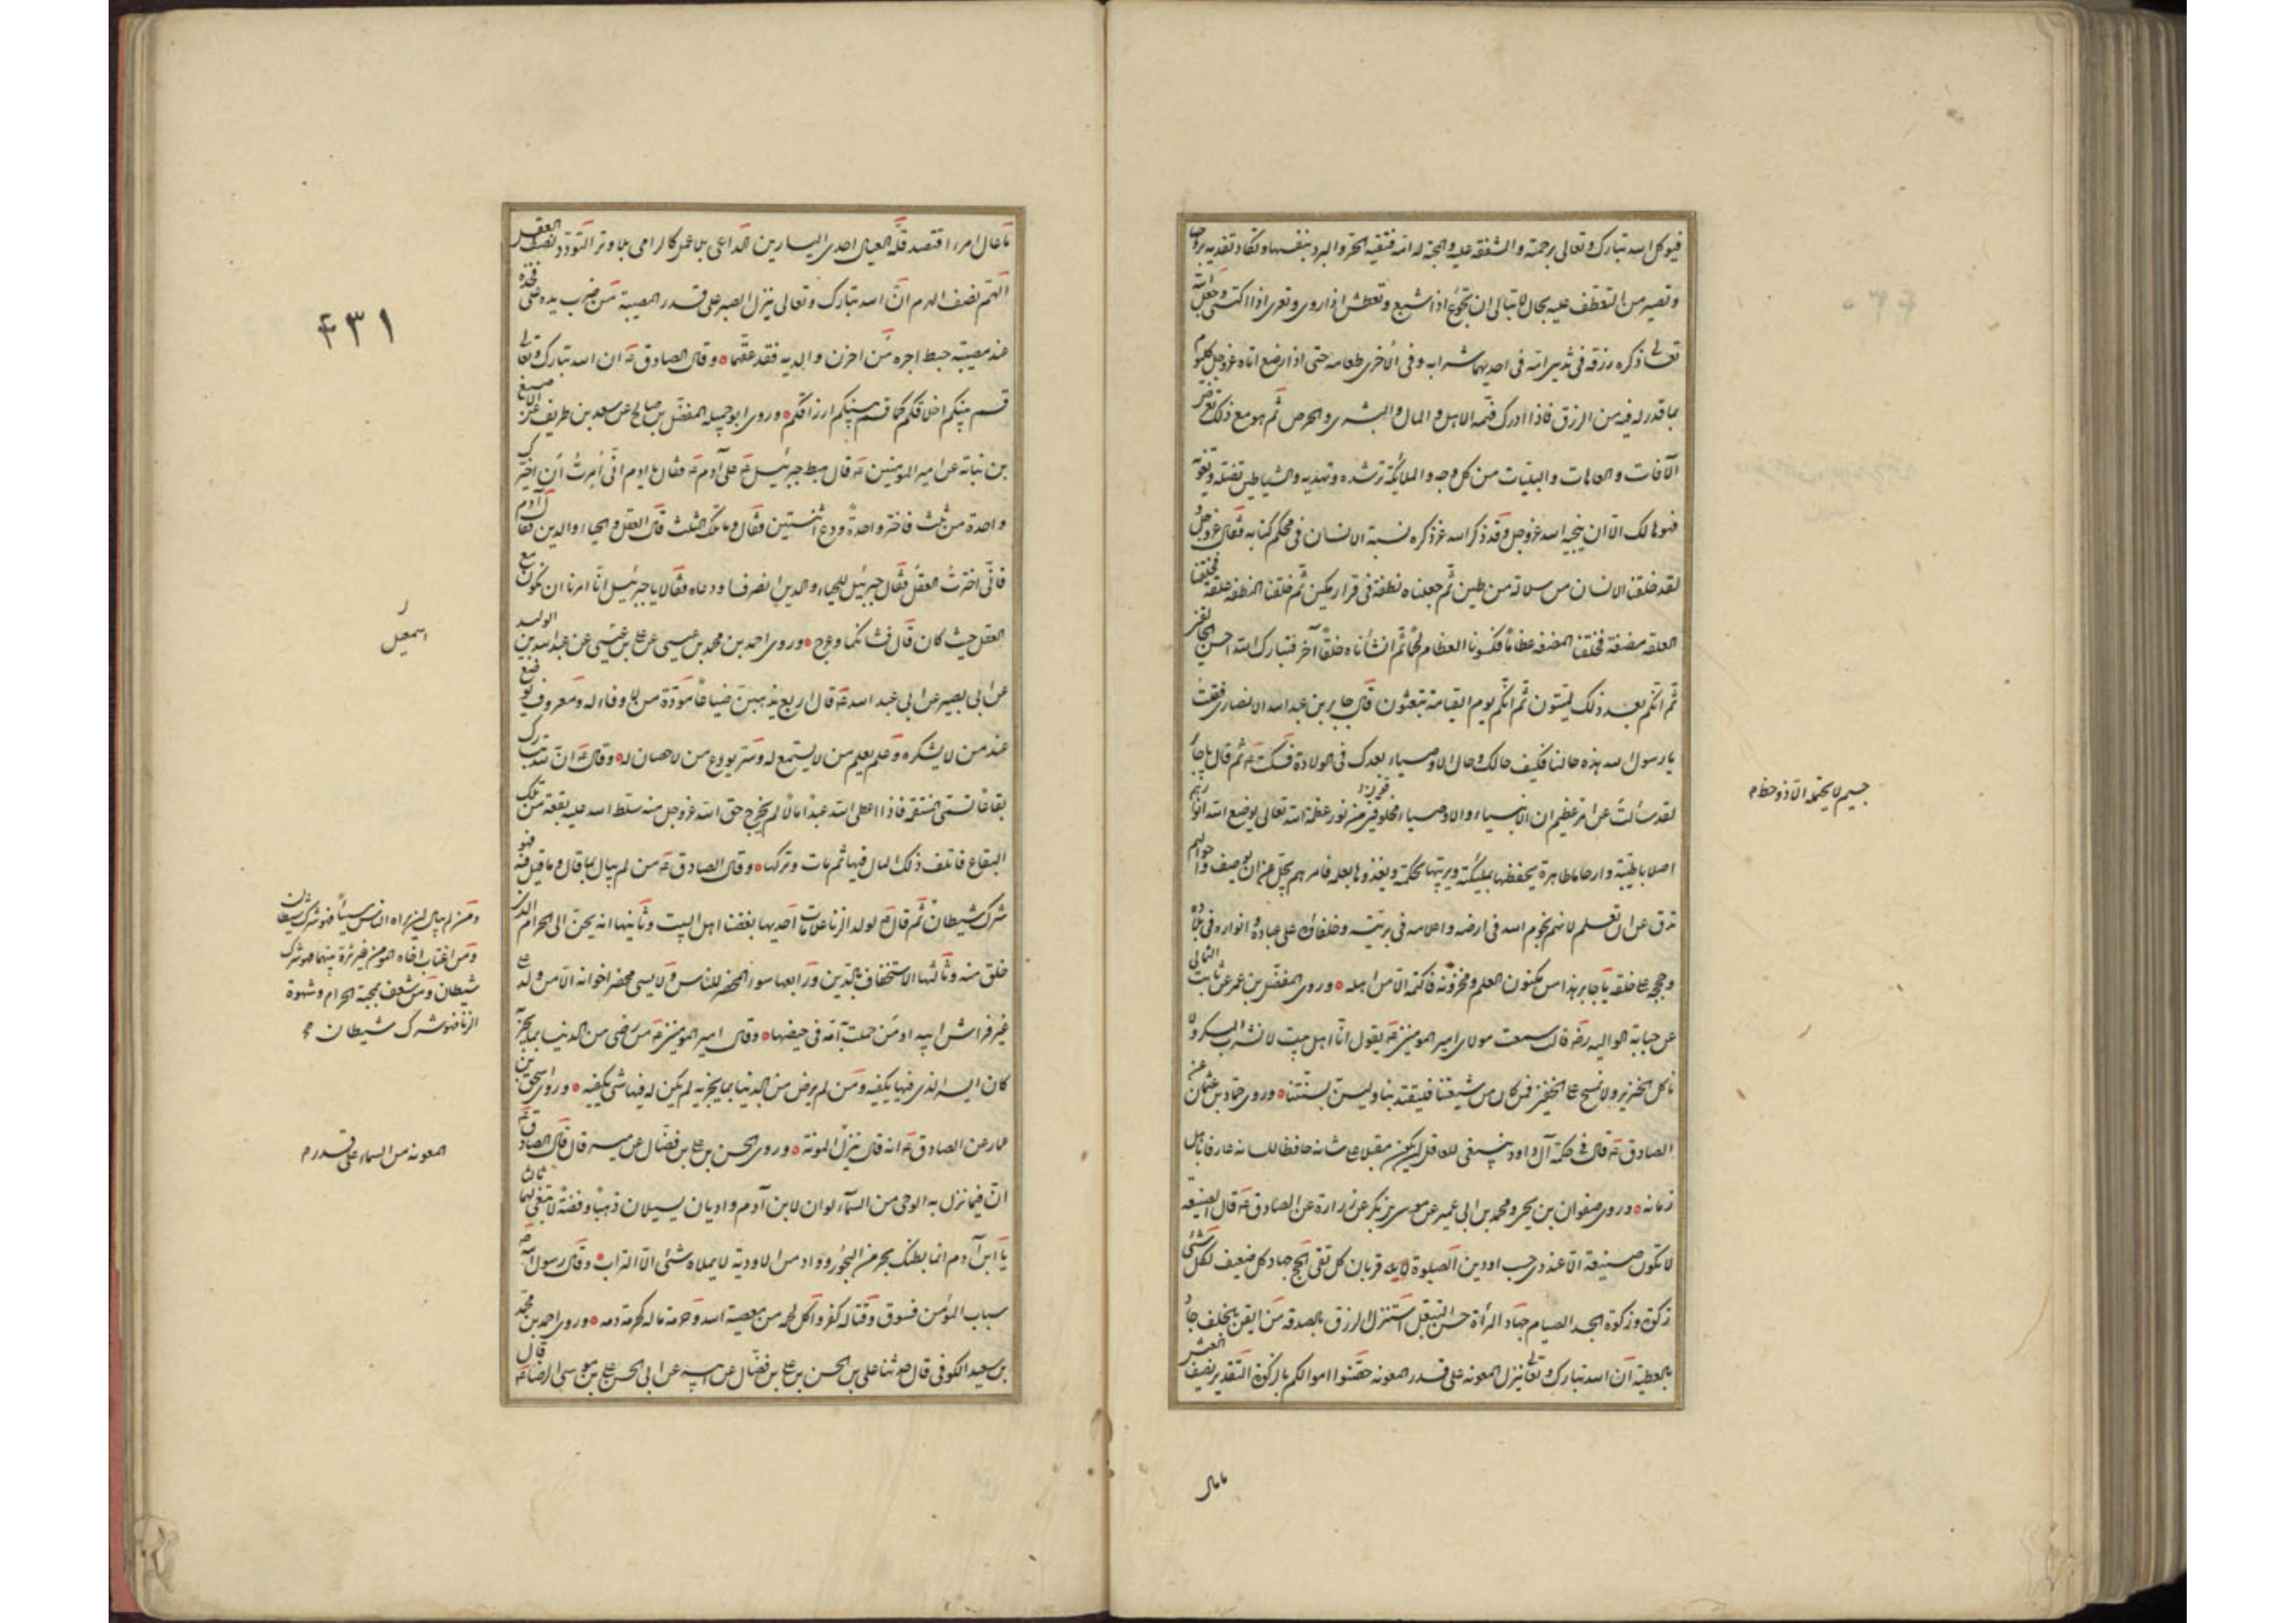 فيوكل الله تبارك وتعالى برحمته والشفقة عليه والمحبة له امه فتقيه الحر والبرد بنفسها وتكاد تفديه بروحها
وتصير من التعطف عليه بحال لا تبالى ان تجوع اذا شبع وتعطش اذا روى وتعرى اذا اكتسى وجعل الله
تعالى ذكره رزقه فى ثديى امه فى احديهما شرابه وفى الاخرى طعامه حتى اذا رضع اتاه عز وجل كل يوم
بما قدر له فيه من الرزق فاذا ادرك فهمه الاهل والمال والشره والحرص ثم هو مع ذلك
الآفات والعاهات والبليات من كل وجه والملائكة ترشده وتهديه والشياطين تضله وتغويه
فهو هالك الا ان ينجيه الله عز وجل وقد ذكر الله عز ذكره نسبة الانسان فى محكم كتابه فقال عز وجل و
لقد خلقنا الانسان من سلالة من طين ثم جعلناه نطفة فى قرار مكين ثم خلقنا النطفة علقة فخلقنا
العلقة مضغة فخلقنا المضغة عظاما فكسونا العظام لحما ثم انشأناه خلقا آخر فتبارك الله احسن الخالقين
ثم انكم بعد ذلك لميتون ثم انكم يوم القيامة تبعثون قال جابر بن عبدالله الانصارى فقلت
يا رسول الله هذه حالنا فكيف حالك وحال الاوصياء بعدك فى الولادة فسكت ثم قال يا جابر
لقد سئلت عن امر عظيم ان الانبياء والاوصياء مخلوقين من نور عظمة الله تعالى يوضع الله انوارهم
اصلابا طيبة وارحاما طاهرة يحفظها بملئكته ويربيها بحكمته ويغذوها بعلمه فامرهم يجل عن ان يوصف واحوالهم
تدق عن ان تعلم لانهم نجوم الله فى ارضه واعلامه فى بريته وخلفاؤه على عباده وانواره فى بلاده
وحججه على خلقه يا جابر هذا من مكنون العلم ومخزونه فاكتمه الا من اهله وروى المفضل بن عمر عن ثابت الثمالى
عن حبابة الوالبيه رضه قالت سمعت مولاى امير المومنين يقول انا اهل بيت لا نشرب المسكر ولا
ناكل الجرى ولا نمسح على الخفين فمن كان من شيعتنا فليقتد بنا وليستن بسنتنا وروى حماد بن عثمان عن
الصادق قال فى حكمة آل داود ينبغى للعاقل ان يكون مقبلا على شانه حافظا للسانه عارفا باهل
زمانه وروى صفوان بن يحيى ومحمد بن ابى عمير عن موسى بن بكر عن زرارة عن الصادق قال الصنيعة
لا تكون صنيعة الا عند ذى حسب او دين الصلوة قربان كل تقى الحج جهاد كل ضعيف لكل شئ
زكوة وزكوة الجسد الصيام جهاد المرأة حسن التبعل استنزل الرزق بالصدقة من ايقن بالخلف جاد
بالعطية ان الله تبارك وتعالى ينزل المعونة على قدر المعونه حصنوا اموالكم بالزكوة التقدير نصف العيش
جسيم لا يحتمله الا ذو حظ م
ما عال
ما عال امرء اقتصد قلة العيال احدى اليسارين الداعى بلا عمل كالرامى بلا وتر التودد نصف العقل
الهم نصف الهرم ان الله تبارك وتعالى ينزل الصبر على قدر المصيبة من ضرب يده على فخذه
عند مصيبته حبط اجره من احزن والديه فقد عقهما وقال الصادق ان الله تبارك وتعالى
قسم بينكم اخلاقكم كما قسم بينكم ارزاقكم وروى ابو جميله المفضل بن صالح عن سعد بن طريف عن الاصبغ
بن نباته عن امير المومنين قال هبط جبرئيل على آدم فقال يا ادم انى امرت ان اخيرك
واحدة من ثلث فاختر واحدة ودع اثنتين فقال وما تلك الثلث قال العقل والحياء والدين فقال آدم
فانى اخترت العقل فقال جبرئيل للحياء والدين انصرفا ودعاه فقالا يا جبرئيل انا امرنا ان نكون مع
العقل حيث كان قال فشانكما وعرج وروى احمد بن محمد بن عيسى عن على بن عيسى عن عبدالله بن الوليد
عن ابى بصير عن ابى عبد الله قال اربع يذهبن ضياعا مودة من لا وفاء له ومعروف يوضع
عند من لا يشكره وعلم يعلم من لا يستمع له وسر يودع من لا حصان له وقال ان لله تبارك
بقاعا تسمى المنتقمة فاذا اعطى الله عبدا مالا لم يخرج حق الله عز وجل منه سلط الله عليه بقعة من تلك
البقاع فاتلف ذلك المال فيها ثم مات وتركها وقال الصادق من لم يبال بما قال وما قيل فيه فهو
شرك شيطان ثم قال لولد الزنا علامات احديها بغضنا اهل البيت وثانيها انه يحن الى الحرام الذى
خلق منه وثالثها الاستخفاف بالدين ورابعها سوء المحضر للناس ولا يسيئ محضر اخوانه الا من ولد على
غير فراش ابيه او من حملت به امه فى حيضها وقال امير المومنين من رضى من الدنيا بما يجزيه
كان ايسر الذى فيها يكفيه ومن لم يرض من الدنيا بما يجزيه لم يكن له فيها شئ يكفيه وروى اسحق بن
عمار عن الصادق انه قال تنزل المونة وروى الحسن بن على بن فضال عن ميسر قال قال الصادق
ان فيما نزل به الوحى من السماء لو ان لابن آدم واديان يسيلان ذهبا وفضة لابتغى لهما ثالثا
يا ابن آدم انما بطنك بحر من البحور وواد من الاودية لا يملاه شئ الا التراب وقال رسول الله
سباب المؤمن فسوق وقتاله كفر واكل لحمه من معصية الله وحرمة ماله كحرمة دمه وروى احمد بن محمد
بن سعيد الكوفى قال حدثنا على بن الحسن بن على بن فضال عن ابيه عن ابى الحسن على بن موسى الرضا قال
٤٣١
ر
اسمعيل
ومن لم يبال ان يراه الناس مسيئا فهو شرك شيطان
ومن اغتاب اخاه المومن من غير ترة بينهما فهو شرك
شيطان ومن شعف بمحبة الحرام وشهوة
الزنا فهو شرك شيطان
المعونة من السماء على قدر م